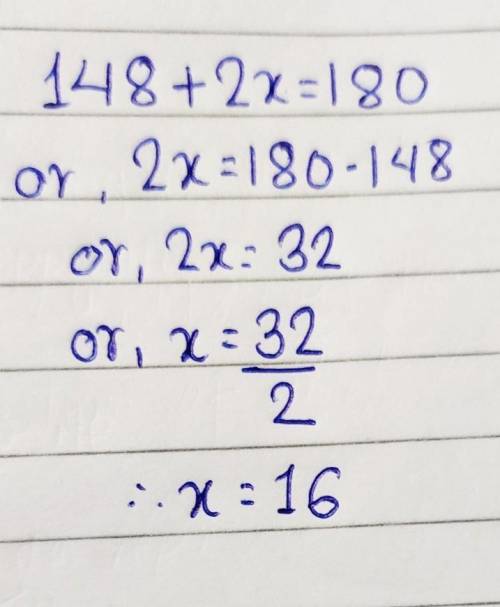 148+2x=180
or, 2x=180-148
or, 2x= 32
or, x = 32/2
∴ x = 16